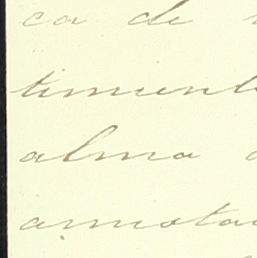 ca de
timent
alma
amista